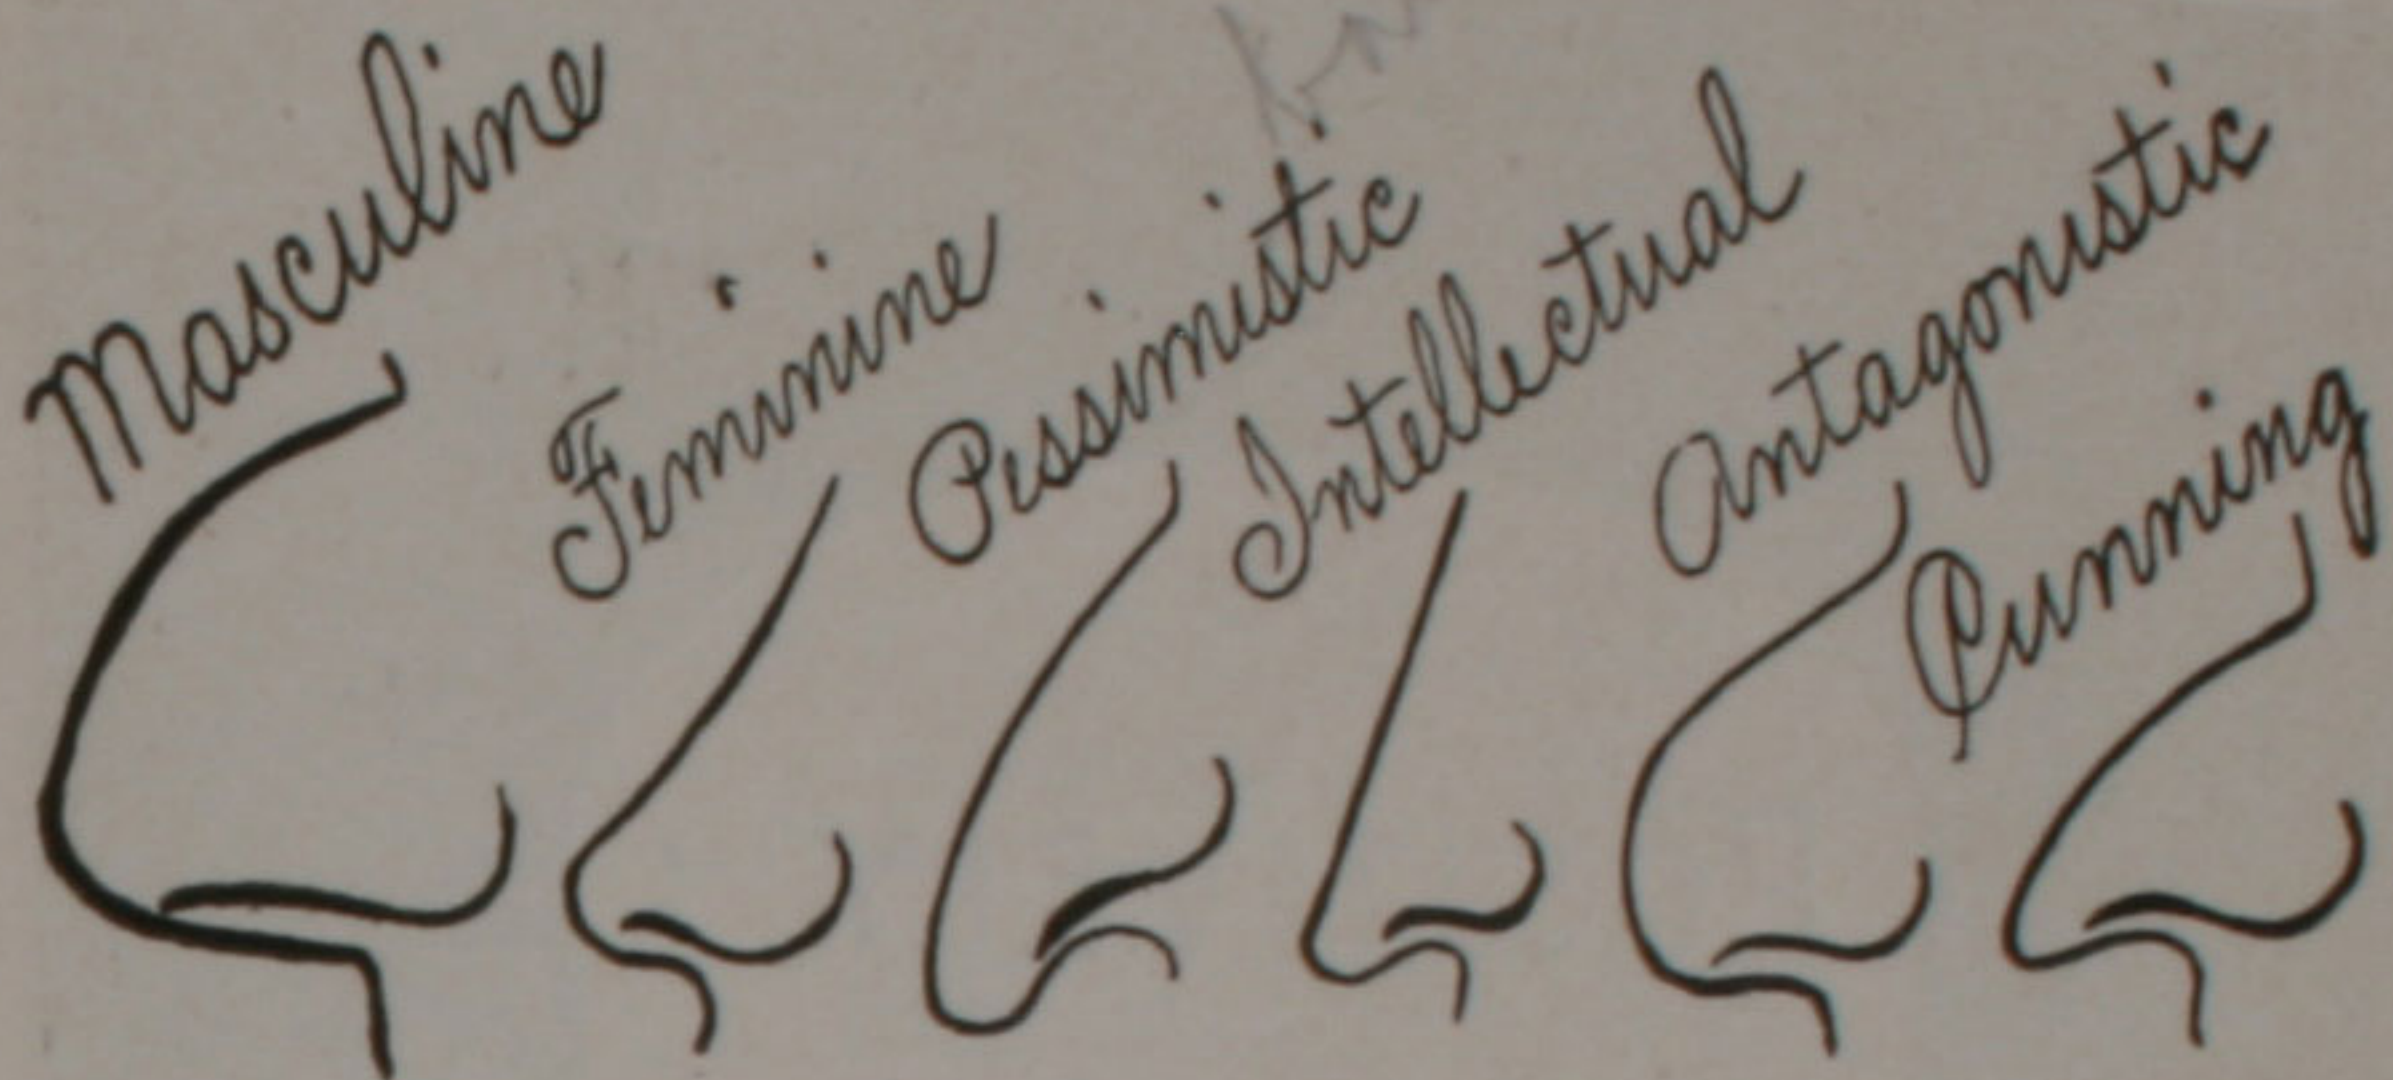 Masculine
Feminine
Pessimistic
Intellectual
Antagonistic
Cunning